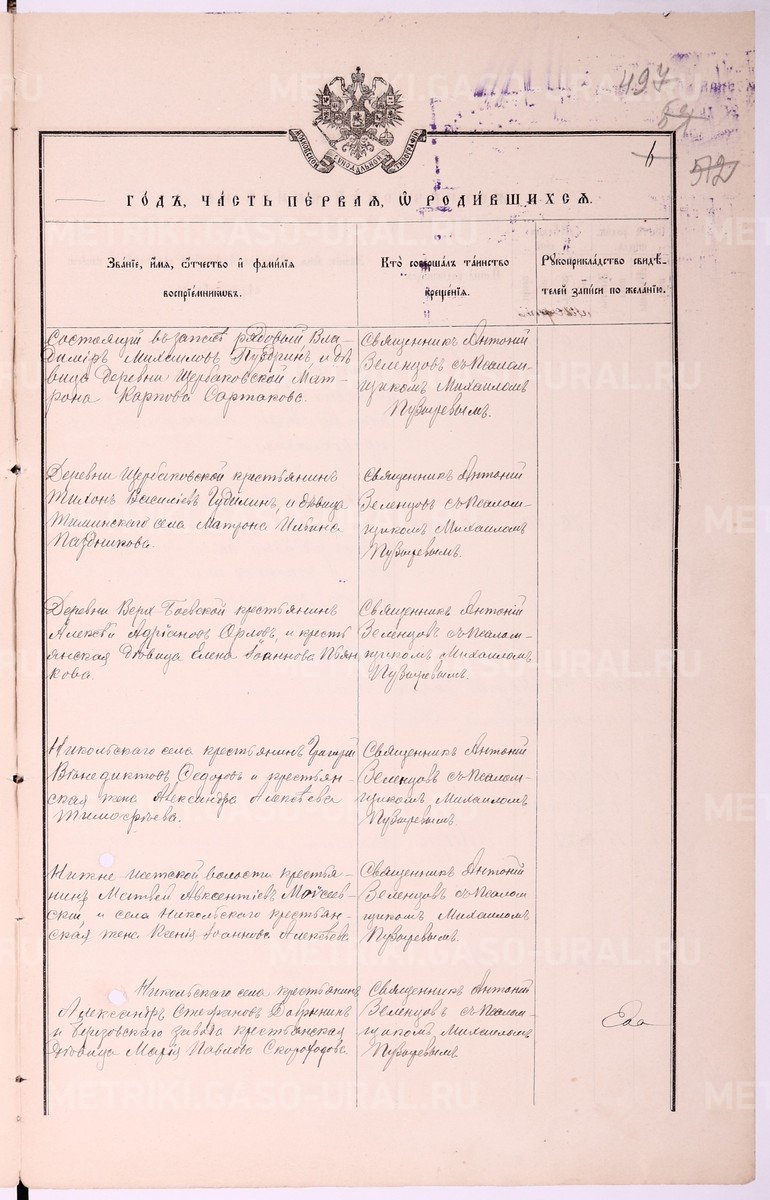 METRIKI.GASO-URAL.RU
497
6
512
МОСКОВСКОЙ СѴНОДАЛЬНОЙ ТИПОГРАФІИ
ГОДЪ, ЧАСТЬ ПЕРВАЯ, Ѡ РОДИВШИХСЯ.
Званіе, имя, отчество и фамилія
воспріемниковъ.
Кто совершалъ таинство
крещенія.
Рукоприкладство свидѣ-
телей записи по желанію.
Состоящій въ запасѣ рядовый Вла-
димиръ Михаиловъ Пудринъ, и дѣ
вица деревни Щербаковской Мат-
рона Карпова Сартакова.
Священникъ Антоній
Зеленцовъ съ псалом-
щикомъ Михаиломъ
Пузыревымъ.
Деревни Щербаковской крестьянинъ
Тихонъ Василіевъ Чудилинъ, и дѣвица
села Матрона Ильина
Священникъ Антоній
Зеленцовъ съ псалом-
щикомъ Михаиломъ
Пузыревымъ.
Деревни Верх Боевской крестьянинъ
Алексѣй Адріановъ Орловъ, и кресть
янская дѣвица Елена Іоаннова Пьян
кова.
Священникъ Антоній
Зеленцовъ съ псалом-
щикомъ Михаиломъ
Пузыревымъ.
Никольскаго села крестьянинъ Григорій
Венедиктовъ Ѳедоровъ и крестьян
ская жена Александра Алексѣева
Тимофѣева.
Священникъ Антоній
Зеленцовъ съ псалом-
щикомъ Михаиломъ
Пузыревымъ.
Нижне Исетской волости крестья-
нинъ Матвей Авксентіевъ Моисеев
скій, и села Никольскаго крестьян-
ская жена Ксенія Іоаннова Алексѣева
Священникъ Антоній
Зеленцовъ съ псалом-
щикомъ Михаиломъ
Пузыревымъ.
Никольскаго села крестьянинъ
Александръ Стефановъ
и Березовскаго завода крестьянская
дѣвица Марія Павлова Скороходова.
Священникъ Антоній
Зеленцовъ съ псалом-
щикомъ Михаиломъ
Пузыревымъ